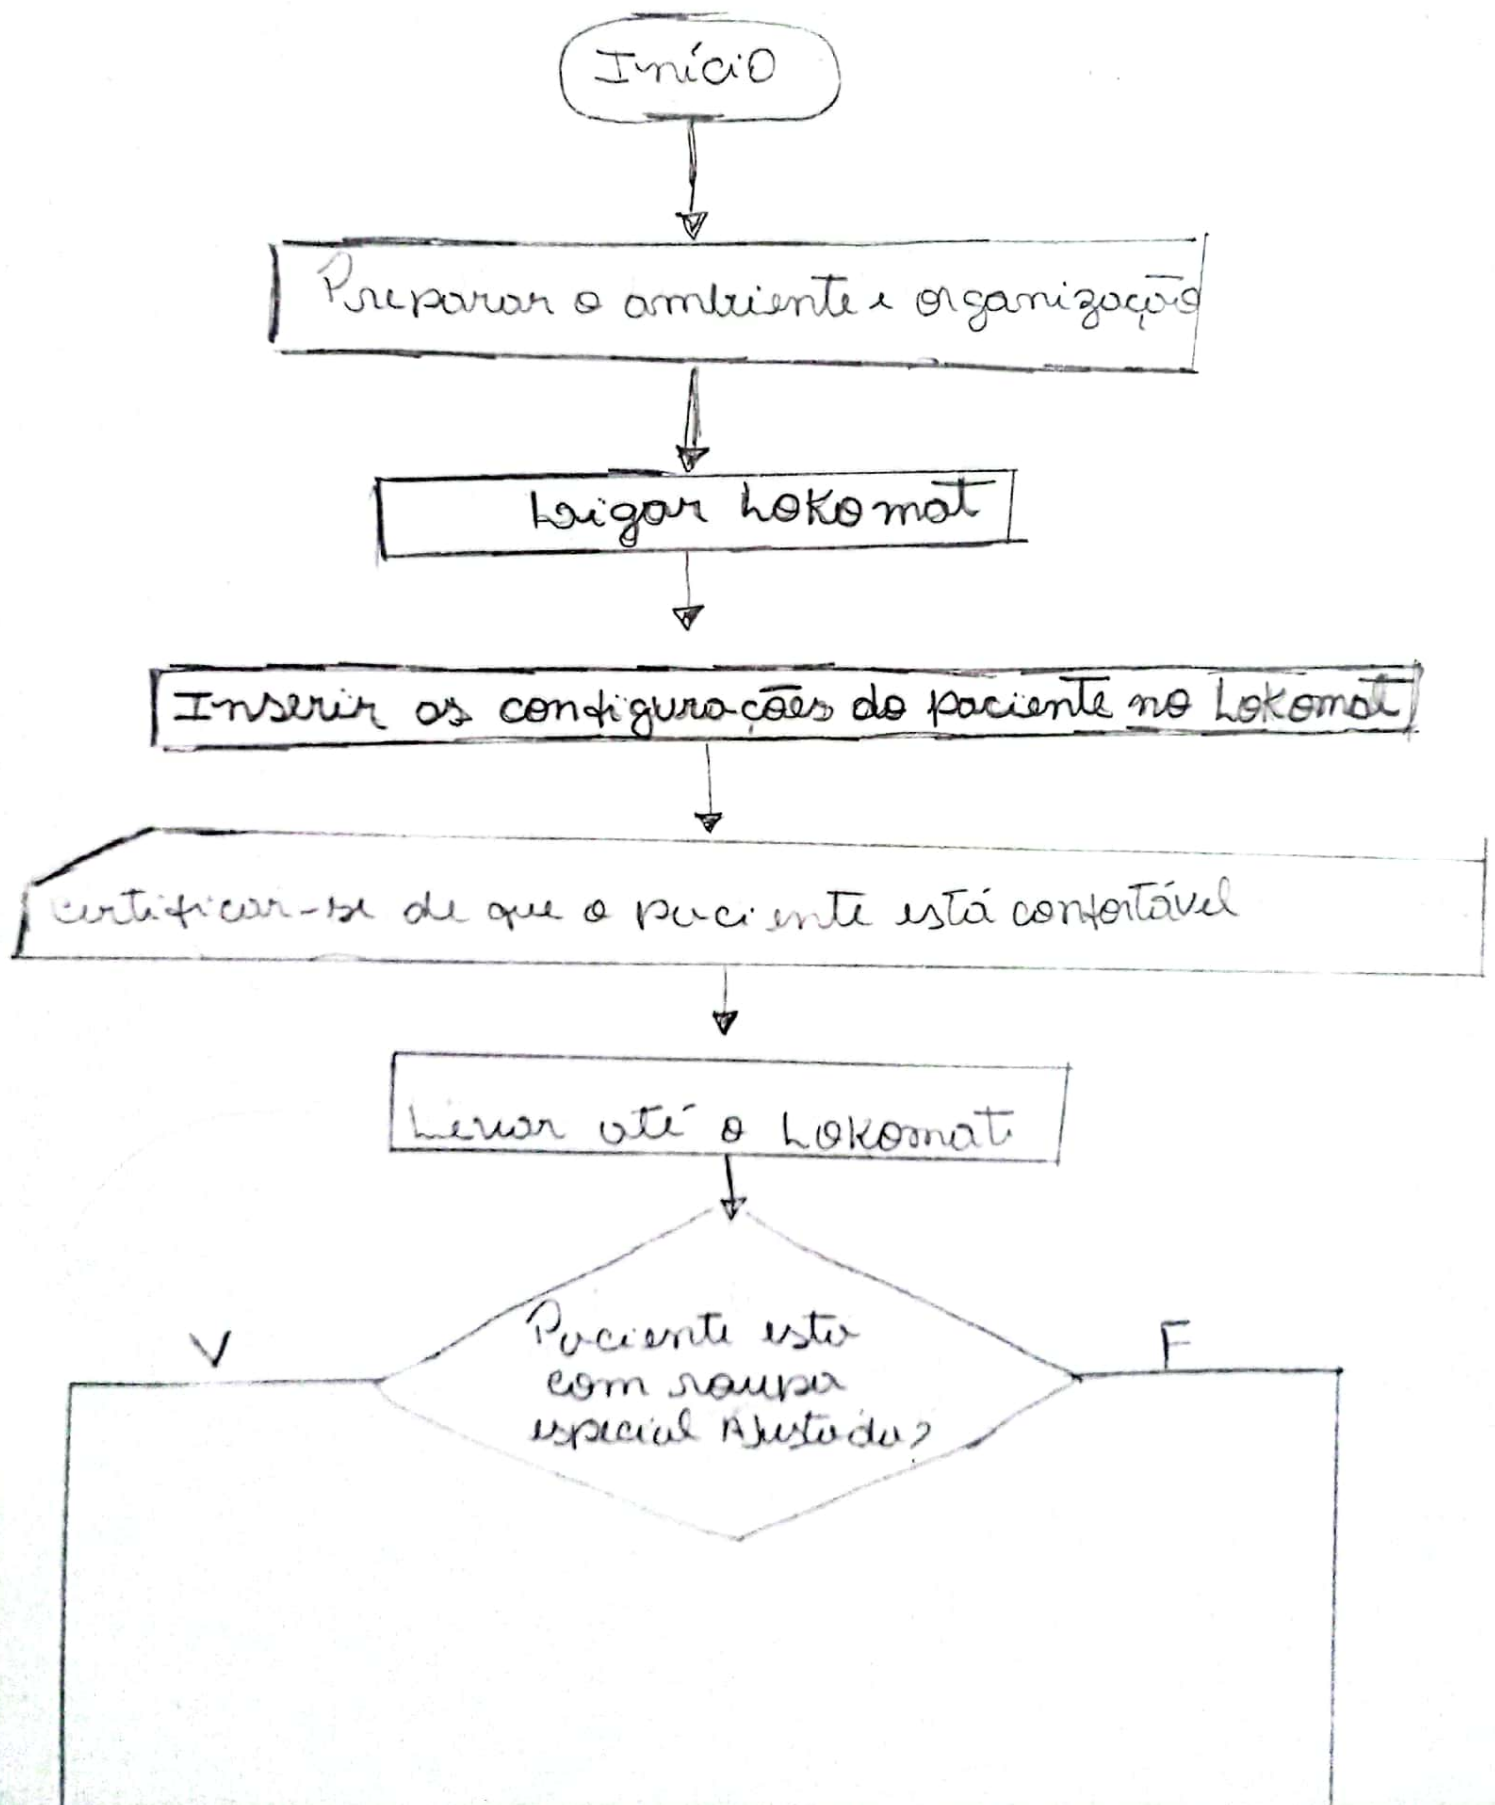 Início
Preparar o ambiente e organização
Ligar Lokomat
Inserir as configurações do paciente no Lokomat
certificar-se de que o paciente está confortável
Levar até o Lokomat
V
F
Paciente esta
com roupa
especial Ajustada?